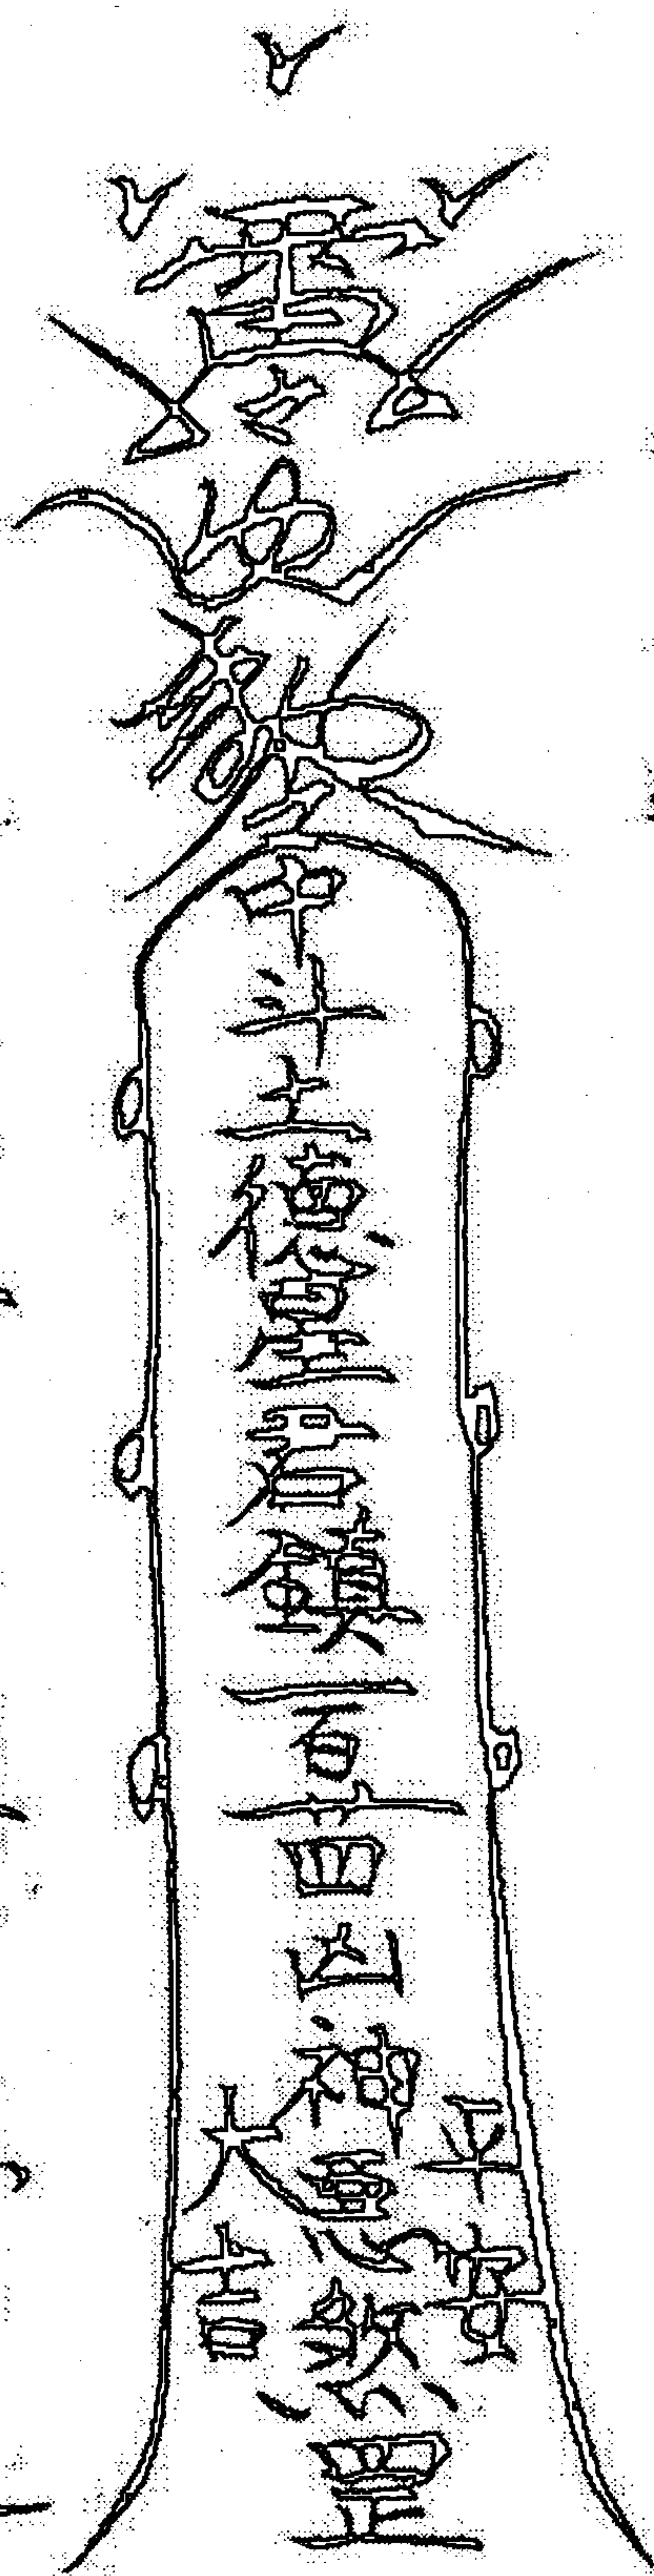 中斗土德星君鎮一百廿四凶神惡煞罡
平安
大吉